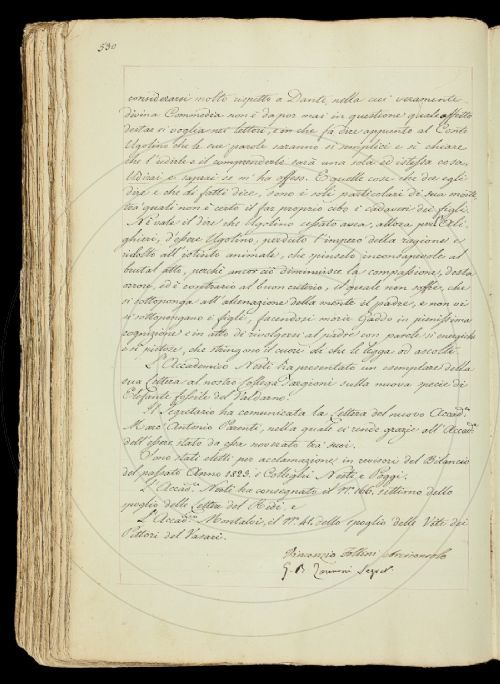 530
considerarsi molto rispetto a Dante, nella cui veramente
divina Commedia non è da por mai in questione quale affetto
destar si voglia nei lettori, e in che fa dire appunto al Conte
Ugolino che le sue parole saranno sì semplici e sì chiare
che l'udirle e il comprenderle sarà una sola ed istessa cosa,
Udirai e saprai se m'ha offeso. E quelle cose che dee egli
dire e che di fatti dice, sono i soli particolari di sua morte
tra quali non è certo il far proprio cibo i cadaveri dei figli.
Nè vale il dire che Ugolino cessato avea, allora per l'Ali-
ghieri, d'esser Ugolino, perduto l'impero della ragione e
ridotto all'istinto animale, che spinselo inconsapevole al
brutal atto, perchè ancor ciò diminuisce la compassione, desta
orrore, ed è contrario al buon criterio, il quale non soffre, che
si sottoponga all'alienazione della mente il padre, e non vi
si sottopongano i figli, facendosi morir Gaddo in pienissima
cognizione e in atto di rivolgersi al padre con parole sì energiche
e sì pietose, che stringono il cuore di che le legga od ascolti.
L'Accademico Nesti ha presentato un esemplare della
sua Lettera al nostro Collega Targioni sulla nuova specie di
Elefante fossile del Valdarno.
Il Segretario ha comunicata la Lettera del nuovo Accad.
Marc'Antonio Parenti, nella quale ei rende grazie all'Accad.
dell'essere stato da essa noverato tra' suoi.
Sono stati eletti per acclamazione in revisori del Bilancio
del passato Anno 1825. i Colleghi Nesti e Poggi.
L'Accad. Nesti ha consegnato il N. 166. settimo dello
spoglio delle Lettere del Redi, e
L'Accad. Montalvi, il N. 41. dello spoglio delle Vite dei
Pittori del Vasari.
Vincenzio Follini Arciconsolo
G. B. Zannoni Segret.